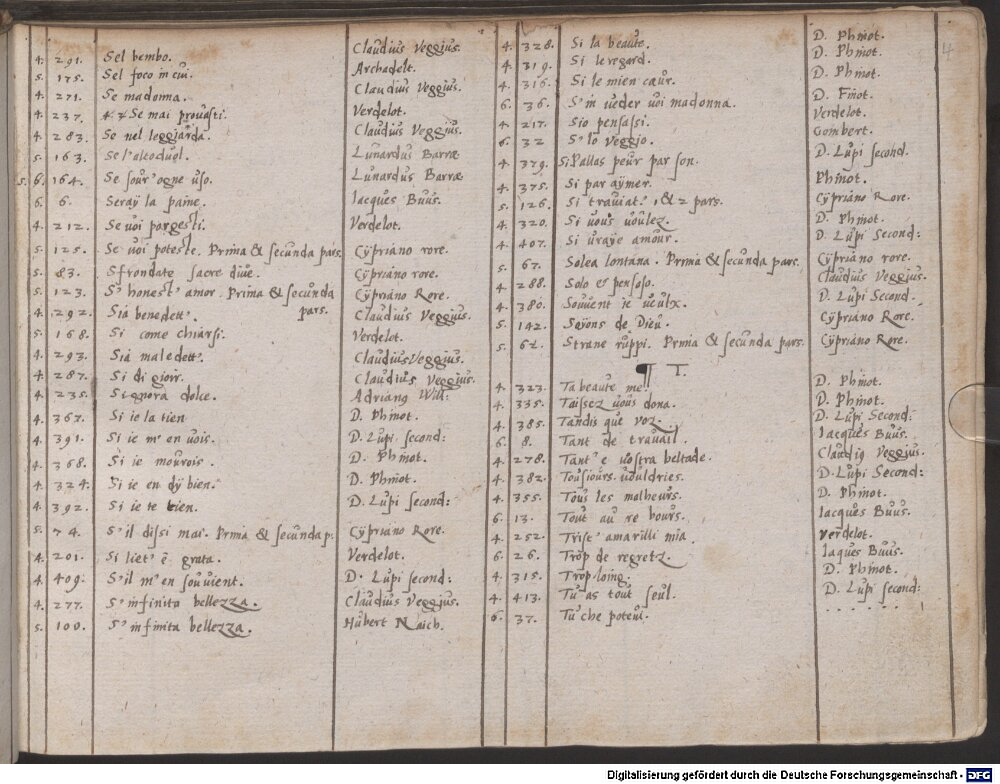 4. 291. Sel bembo. Claudius Veggius.
5. 175. Sel foco in cui. Archadelt.
4. 271. Se madonna. Claudius Veggius.
4. 237. Se mai provasti. Verdelot.
4. 283. Se nel leggiarda. Claudius Veggius.
5. 163. Lunardus Barræ
5. 6. 164. Se sour' ogne uso. Lunardus Barræ
6. 6. Seray la paine. Iacques Buus.
4. 212. Se voi porgesti. Verdelot.
5. 125. Se voi poteste. Prima & secunda pars. Cÿpriano rore.
5. 83. Sfrondate sacre dive. Cÿpriano rore.
5. 123. S' honest' amor. Prima & secunda pars. Cÿpriano Rore.
4. 292. Sia benedett'. Claudius Veggius.
5. 168. Si come chiarsi. Verdelot.
4. 293. Sia maledett'. Claudius Veggius.
4. 287. Si di gioir. Claudius Veggius.
4. 235. Signora dolce. Adriang Will:
4. 367. Si ie la tien D. Phinot.
4. 391. Si ie m' en vois. D. Lupi second:
4. 368. Si ie mourois. D. Phinot.
4. 324. Si ie en dÿ bien. D. Phinot.
4. 392. Si ie te tien. D. Lupi second:
5. 74. S' il dissi mai. Prima & secunda p: Cÿpriano Rore.
4. 201. Si liet' e grata. Verdelot.
4. 409. S'il m' en souvient. D. Lupi second:
4. 277. S' infinita bellezza. Claudius Veggius.
5. 100. S' infinita bellezza. Hubert Naich.
4. 328. Si la beaute. D. Phinot.
4. 319. Si le regard. D. Phinot.
4. 316. Si le mien cœur. D. Phinot.
6. 36. S' in veder voi madonna. D. Finot.
4. 217. Sio pensassi. Verdelot.
6. 32 S' lo veggio. Gombert.
4. 379. Si Pallas peur par son. D. Lupi second.
4. 375. Si par aÿmer. Phinot.
5. 126. Si traviat. 1 & 2 pars. Cÿpriano Rore.
4. 320. Si vous voulez. D. Phinot.
4. 407. Si vraye amour. D. Lupi Second:
5. 67. Solea lontana. Prima & secunda pars. Cÿpriano rore.
4. 288. Solo e pensoso. Claudius Veggius.
4. 380. Souvent ie veulx. D. Lupi Second.
5. 142. Saÿons de Dieu. Cÿpriano Rore.
5. 62. Strane ruppi. Prima & secunda pars. Cÿpriano Rore.
¶ T.
4. 323. Ta beaute me. D. Phinot.
4. 335. Taissez vous dona. D. Phinot.
4. 385. Tandis que voz. D. Lupi Second:
6. 8. Tant de travail. Iacques Buus.
4. 278. Tant' e vostra beltade. Claudig Veggius.
4. 382. Tousiours vouldries. D. Lupi Second:
4. 355. Tous les malheurs. D. Phinot.
6. 13. Tout au re bours. Iacques Buus.
4. 252. Trist' amarilli mia. Verdelot.
6. 26. Trop de regretz. Iaques Buus.
4. 315. Trop loing. D. Phinot.
4. 413. Tu as tout seul. D. Lupi second:
6. 37. Tu che potevi.
4
Digitalisierung gefördert durch die Deutsche Forschungsgemeinschaft - DFG